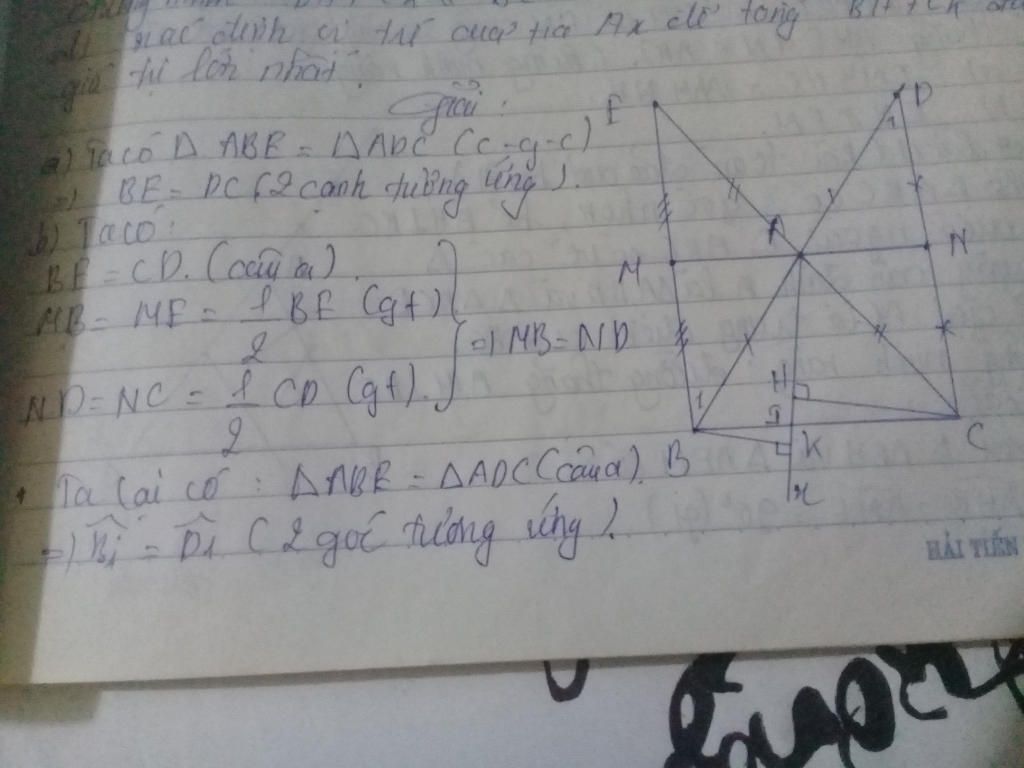 d) xác định vị trí của tia Ax để tổng BH + CK
giá trị lớn nhất.
Giải:
a) Ta có Δ ABE = Δ ADC (c-g-c)
=) BE = DC (2 cạnh tương ứng).
b) Ta có:
BE = CD. (câu a).
MB = ME = 1/2 BE (gt)
ND = NC = 1/2 CD (gt).
=) MB = ND
Ta lại có : Δ ABE = Δ ADC (câu a).
=) B̂1 = D̂1 (2 góc tương ứng).
E
D
1
A
M
N
H
I
1
B
K
C
x
HẢI TIẾN